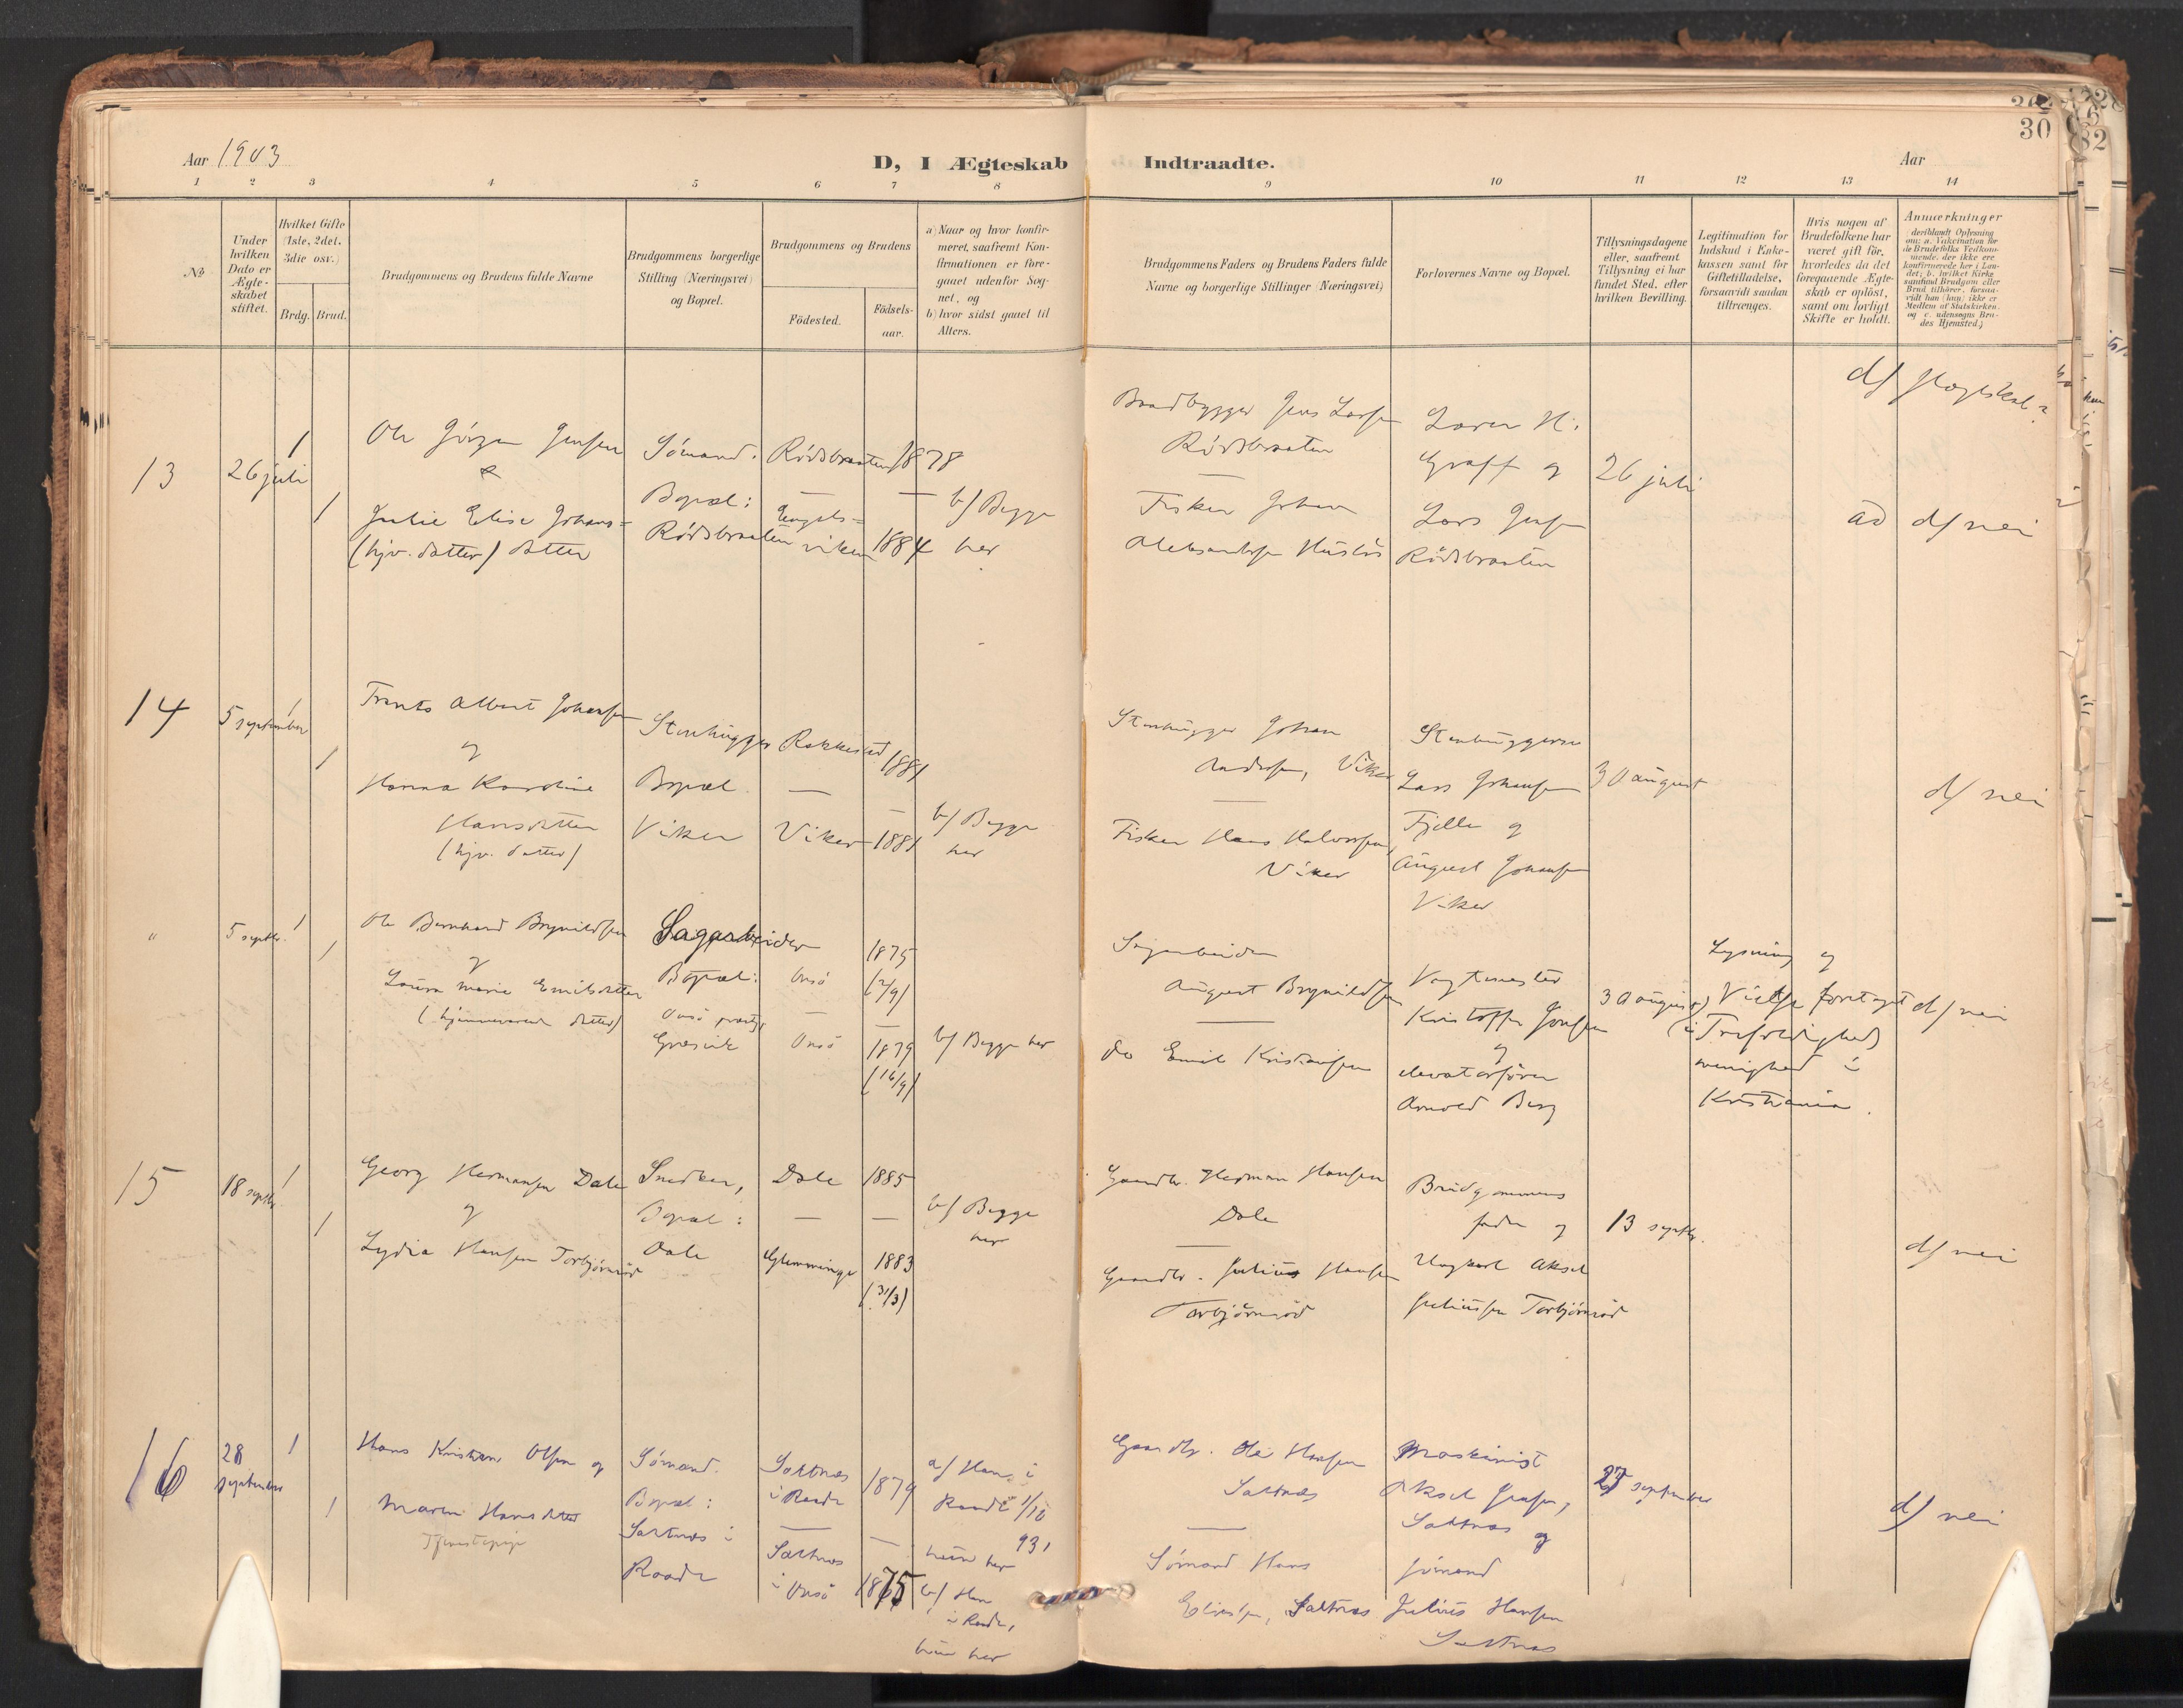 30
32
Aar 1903
D, I Ægteskab Indtraadte.
Aar
1 2 3 4 5 6 7 8 9 10 11 12 13 14
No
Under hvilken Dato er Ægteskabet stiftet.
Hvilket Gifte (1ste, 2det, 3die osv.)
Brdg. Brud.
Brudgommens og Brudens fulde Navne
Brudgommens borgerlige Stilling (Næringsvei) og Bopæl.
Brudgommens og Brudens
Födested. Födsels-aar.
a) Naar og hvor konfirmeret, saafremt Konfirmationen er foregaaet udenfor Sognet, og
b) hvor sidst gaaet til Alters.
Brudgommens Faders og Brudens Faders fulde Navne og borgerlige Stillinger (Næringsvei)
Forlovernes Navne og Bopæl.
Tillysningsdagene eller, saafremt Tillysning ei har fundet Sted, efter hvilken Bevilling.
Legitimation for Indskud i Enkekassen samt for Giftetilladelse, forsaavidt saadan tiltrænges.
Hvis nogen af Brudefolkene har været gift för, hvorledes da det foregaaende Ægteskab er oplöst, samt om lovligt Skifte er holdt.
Anmerkninger
(deriblandt Oplysning om: a. Vakcination for de Brudefolks Vedkommende, der ikke ere konfirmerede her i Landet; b. hvilket Kirkesamfund Brudgom eller Brud tilhörer, forsaavidt han (hun) ikke er Medlem af Statskirken, og c. udensogns Brudes Hjemsted.)
13
26 juli
1
1
Ole Jörgen Jensen
&
Julie Elise Johans=
(hjv. datter) datter
Sömand.
Bopæl:
Rödsbraaten
Rödsbraaten 1878
— —
Engels=
viken 1884
b/ Begge
her
Baadbygger Jens Larsen
Rödsbraaten
—
Fisker Johan
Aleksandersen Huslös
Graff og
Lars Jensen
Rödsbraaten
26 juli
d/
ad d/ nei
14
5 september
1
1
Frants Albert Johansen
og
Hanna Karoline
Hansdatter
(hjv. datter)
Stenhugger
Bopæl
Viker
Rakkestad 1881
— —
Viker 1881
b/ Begge
her
Stenhugger Johan
Andersen, Viker
—
Fisker Hans Halvorsen,
Viker
Stenhuggerne
Lars Johansen
Fjelle og
August Johansen
Viker
30 august
d/ nei
"
5 septbr.
1
1
Ole Bernhard Brynildsen
og
Laura Marie Emilsdatter
(hjemmeværende datter)
Sagarbeider
Bopæl:
Onsö præstgj
Gresvik
Onsö
—
Onsö
1875
(2/9)
—
1879
(16/9)
b/ Begge her
Sagarbeider
August Brynildsen
—
do Emil Kristiansen
Vagtmester
Kristoffer Jonsen
og
elevatorförer
Arnold Berg
30 august
Lysning og
Vielse foretaget
(i Trefoldighed)
menighed i
Kristiania.
d/ nei
15
18 septbr.
1
1
Georg Hermansen Dale
og
Lydia Hansen Torbjörnröd
Snedker,
Bopæl:
Dale
Dale 1885
— —
Glemminge 1883
(31/3)
b/ Begge
her
Gaardbr. Herman Hansen
Dale
—
Gaardbr. Julius Hansen
Torbjörnröd
Brudgommens
fader og
Ungkarl Aksel
Juliussen Torbjörnröd
13 septbr.
d/ nei
16
28
september
1
1
Hans Kristian Olsen og
Maren Hansdatter
Tjenestepige
Sömand.
Bopæl:
Saltnæs i
Raade
Saltnæs
i Raade 1879
— —
Saltnæs
i Onsö 1875
a/ Hans i
Raade 1/10
93,
hun her
b/ Han
i Raade,
hun her
Gaardbr. Ole Hansen
Saltnæs
—
Sömand Hans
Saltnæs
Maskinist
Aksel Jensen,
Saltnæs og
sömand
Julius Hansen
Saltnæs
27 september
d/ nei